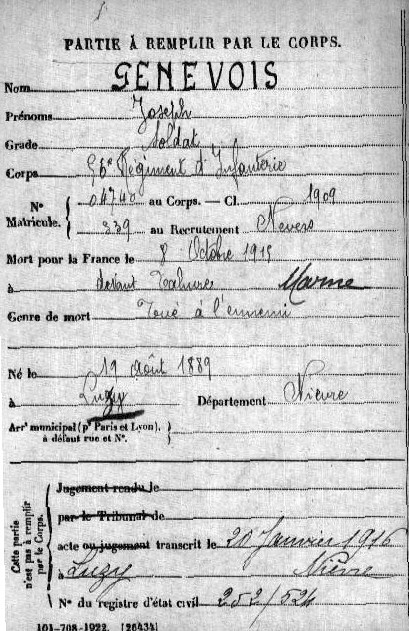 PARTIE À REMPLIR PAR LE CORPS.
Nom GENEVOIS
Prénoms Joseph
Grade Soldat
Corps 56e Régiment d'Infanterie
N° Matricule. { 04740 au Corps. — Cl. 1909
339 au Recrutement Nevers
Mort pour la France le 8 Octobre 1915
à devant Tahure Marne
Genre de mort Tué à l'ennemi
Né le 19 Août 1889
à Luzy Département Nièvre
Arrt municipal (pr Paris et Lyon),
à défaut rue et N°. }
Cette partie n'est pas à remplir par le Corps.
Jugement rendu le
par le Tribunal de
acte ou jugement transcrit le 20 Janvier 1916
à Luzy Nièvre
N° du registre d'état civil 252/524
101-708-1922. [26434]